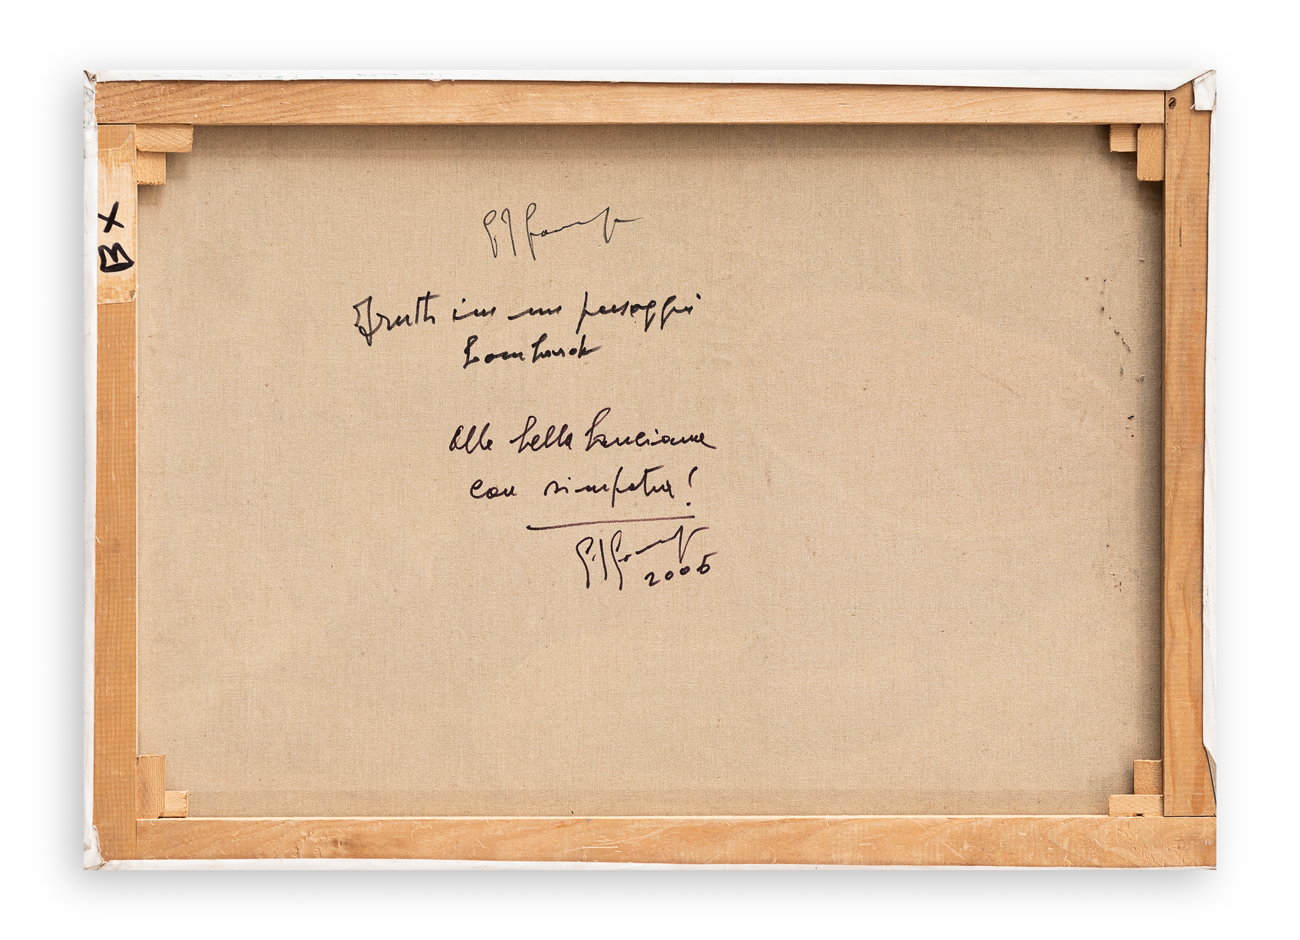 Frutti in un paesaggio
Lombardo
Alla bella Luciana
con simpatia!
2006
BX